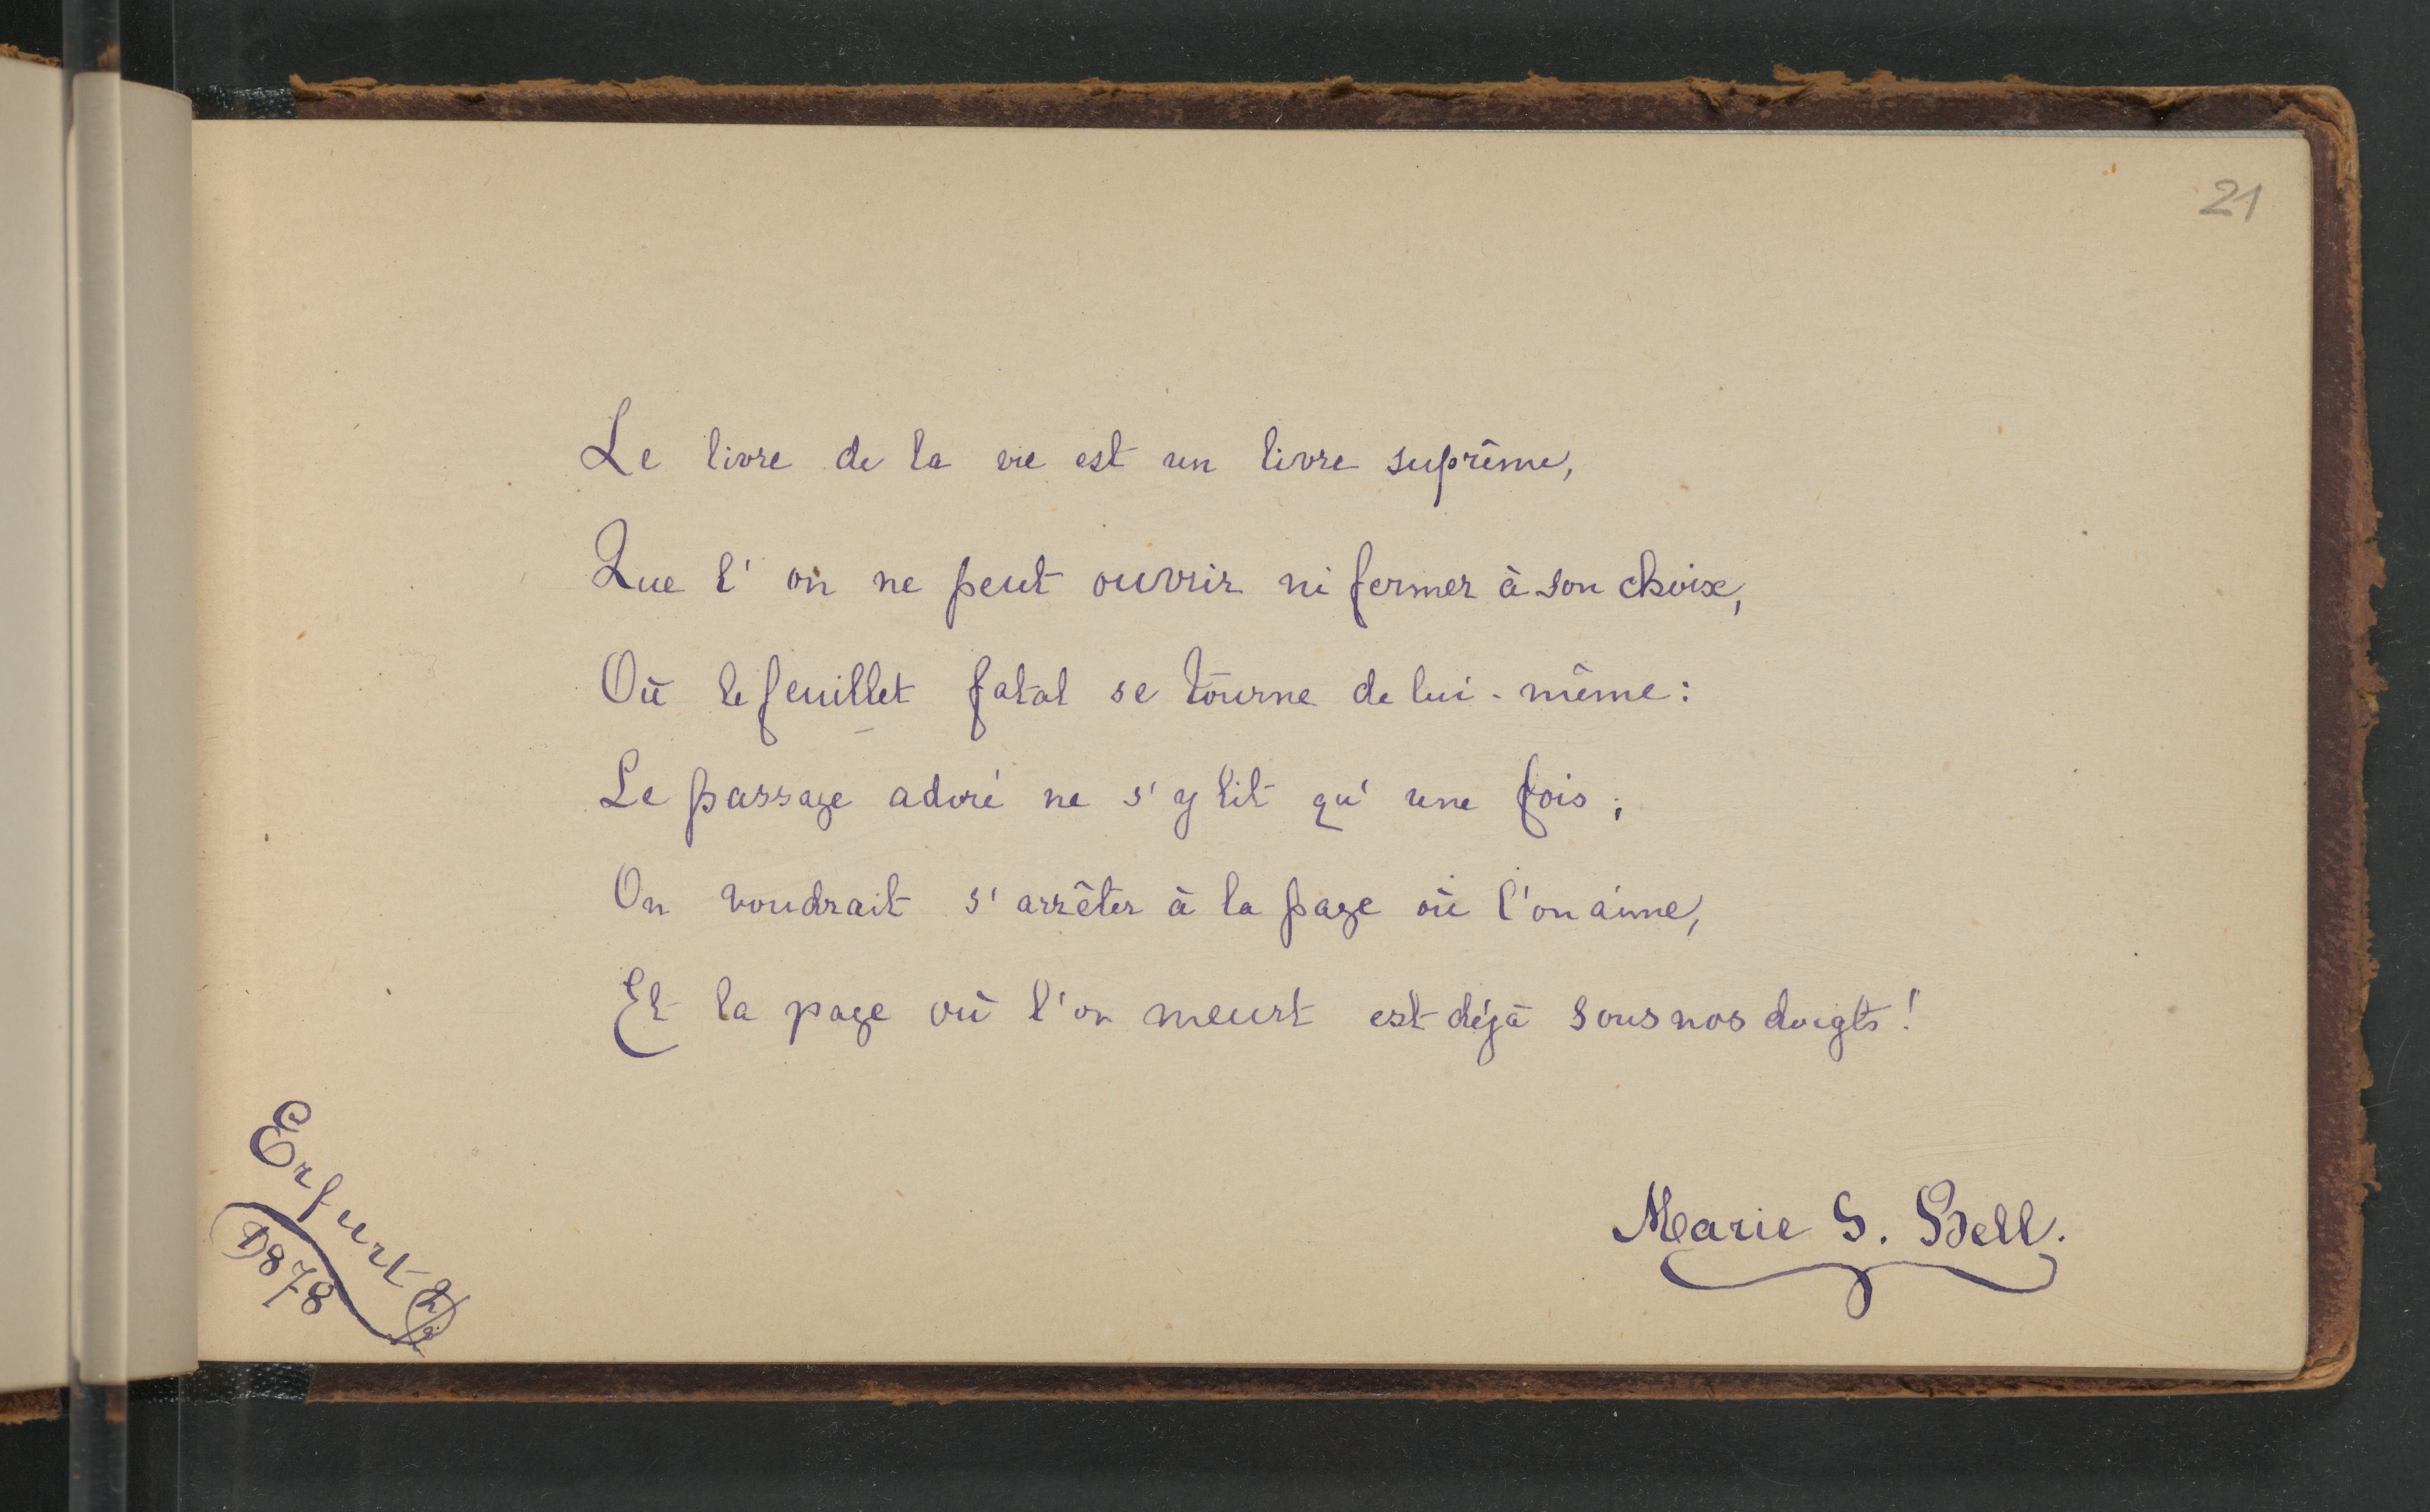 21
Le livre de la vie est un livre suprême,
Que l'on ne peut ouvrir ni fermer à son choix,
Où le feuillet fatal se tourne de lui-même:
Le passage adoré ne s'y lit qu'une fois;
On voudrait s'arrêter à la page où l'on aime,
Et la page où l'on meurt est déjà sous nos doigts!
Marie S. Bell.
Erfurt 2/
1878